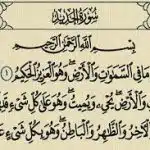 سُورَةُ الْحَدِيدِ
بِسْمِ اللَّهِ الرَّحْمَٰنِ الرَّحِيمِ
مَا فِي السَّمَٰوَٰتِ وَالْأَرْضِ وَهُوَ الْعَزِيزُ الْحَكِيمُ ١
وَالْأَرْضِ يُحْيِۦ وَيُمِيتُ وَهُوَ عَلَىٰ كُلِّ شَيْءٍ
الْآخِرُ وَالظَّٰهِرُ وَالْبَاطِنُ وَهُوَ بِكُلِّ شَيْءٍ